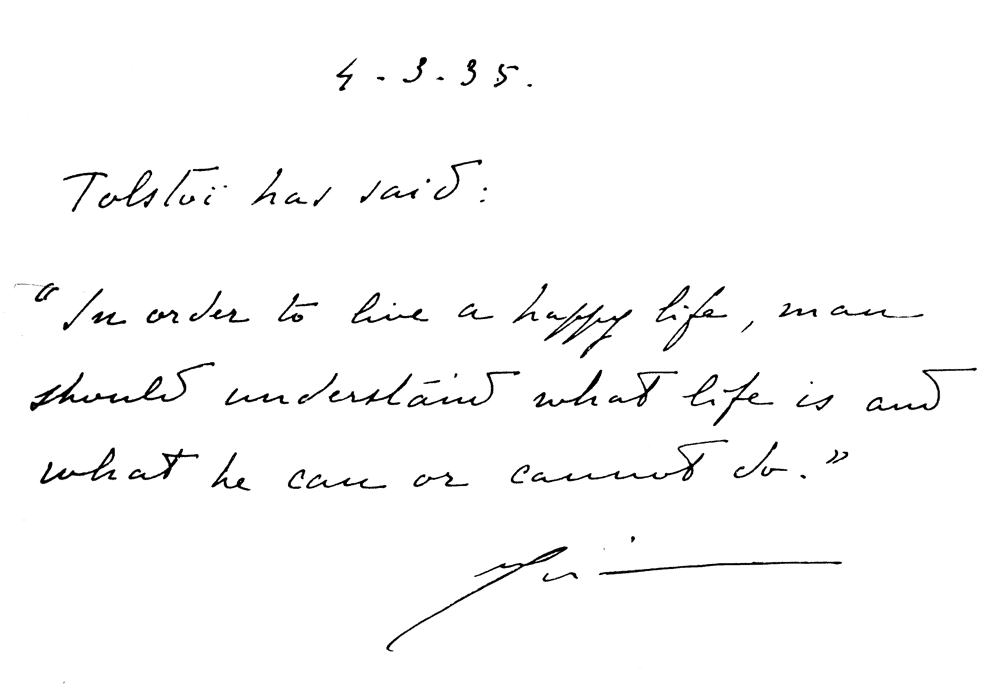 4.3.35.
Tolstoï has said:
“In order to live a happy life, man
should understand what life is and
what he can or cannot do.”